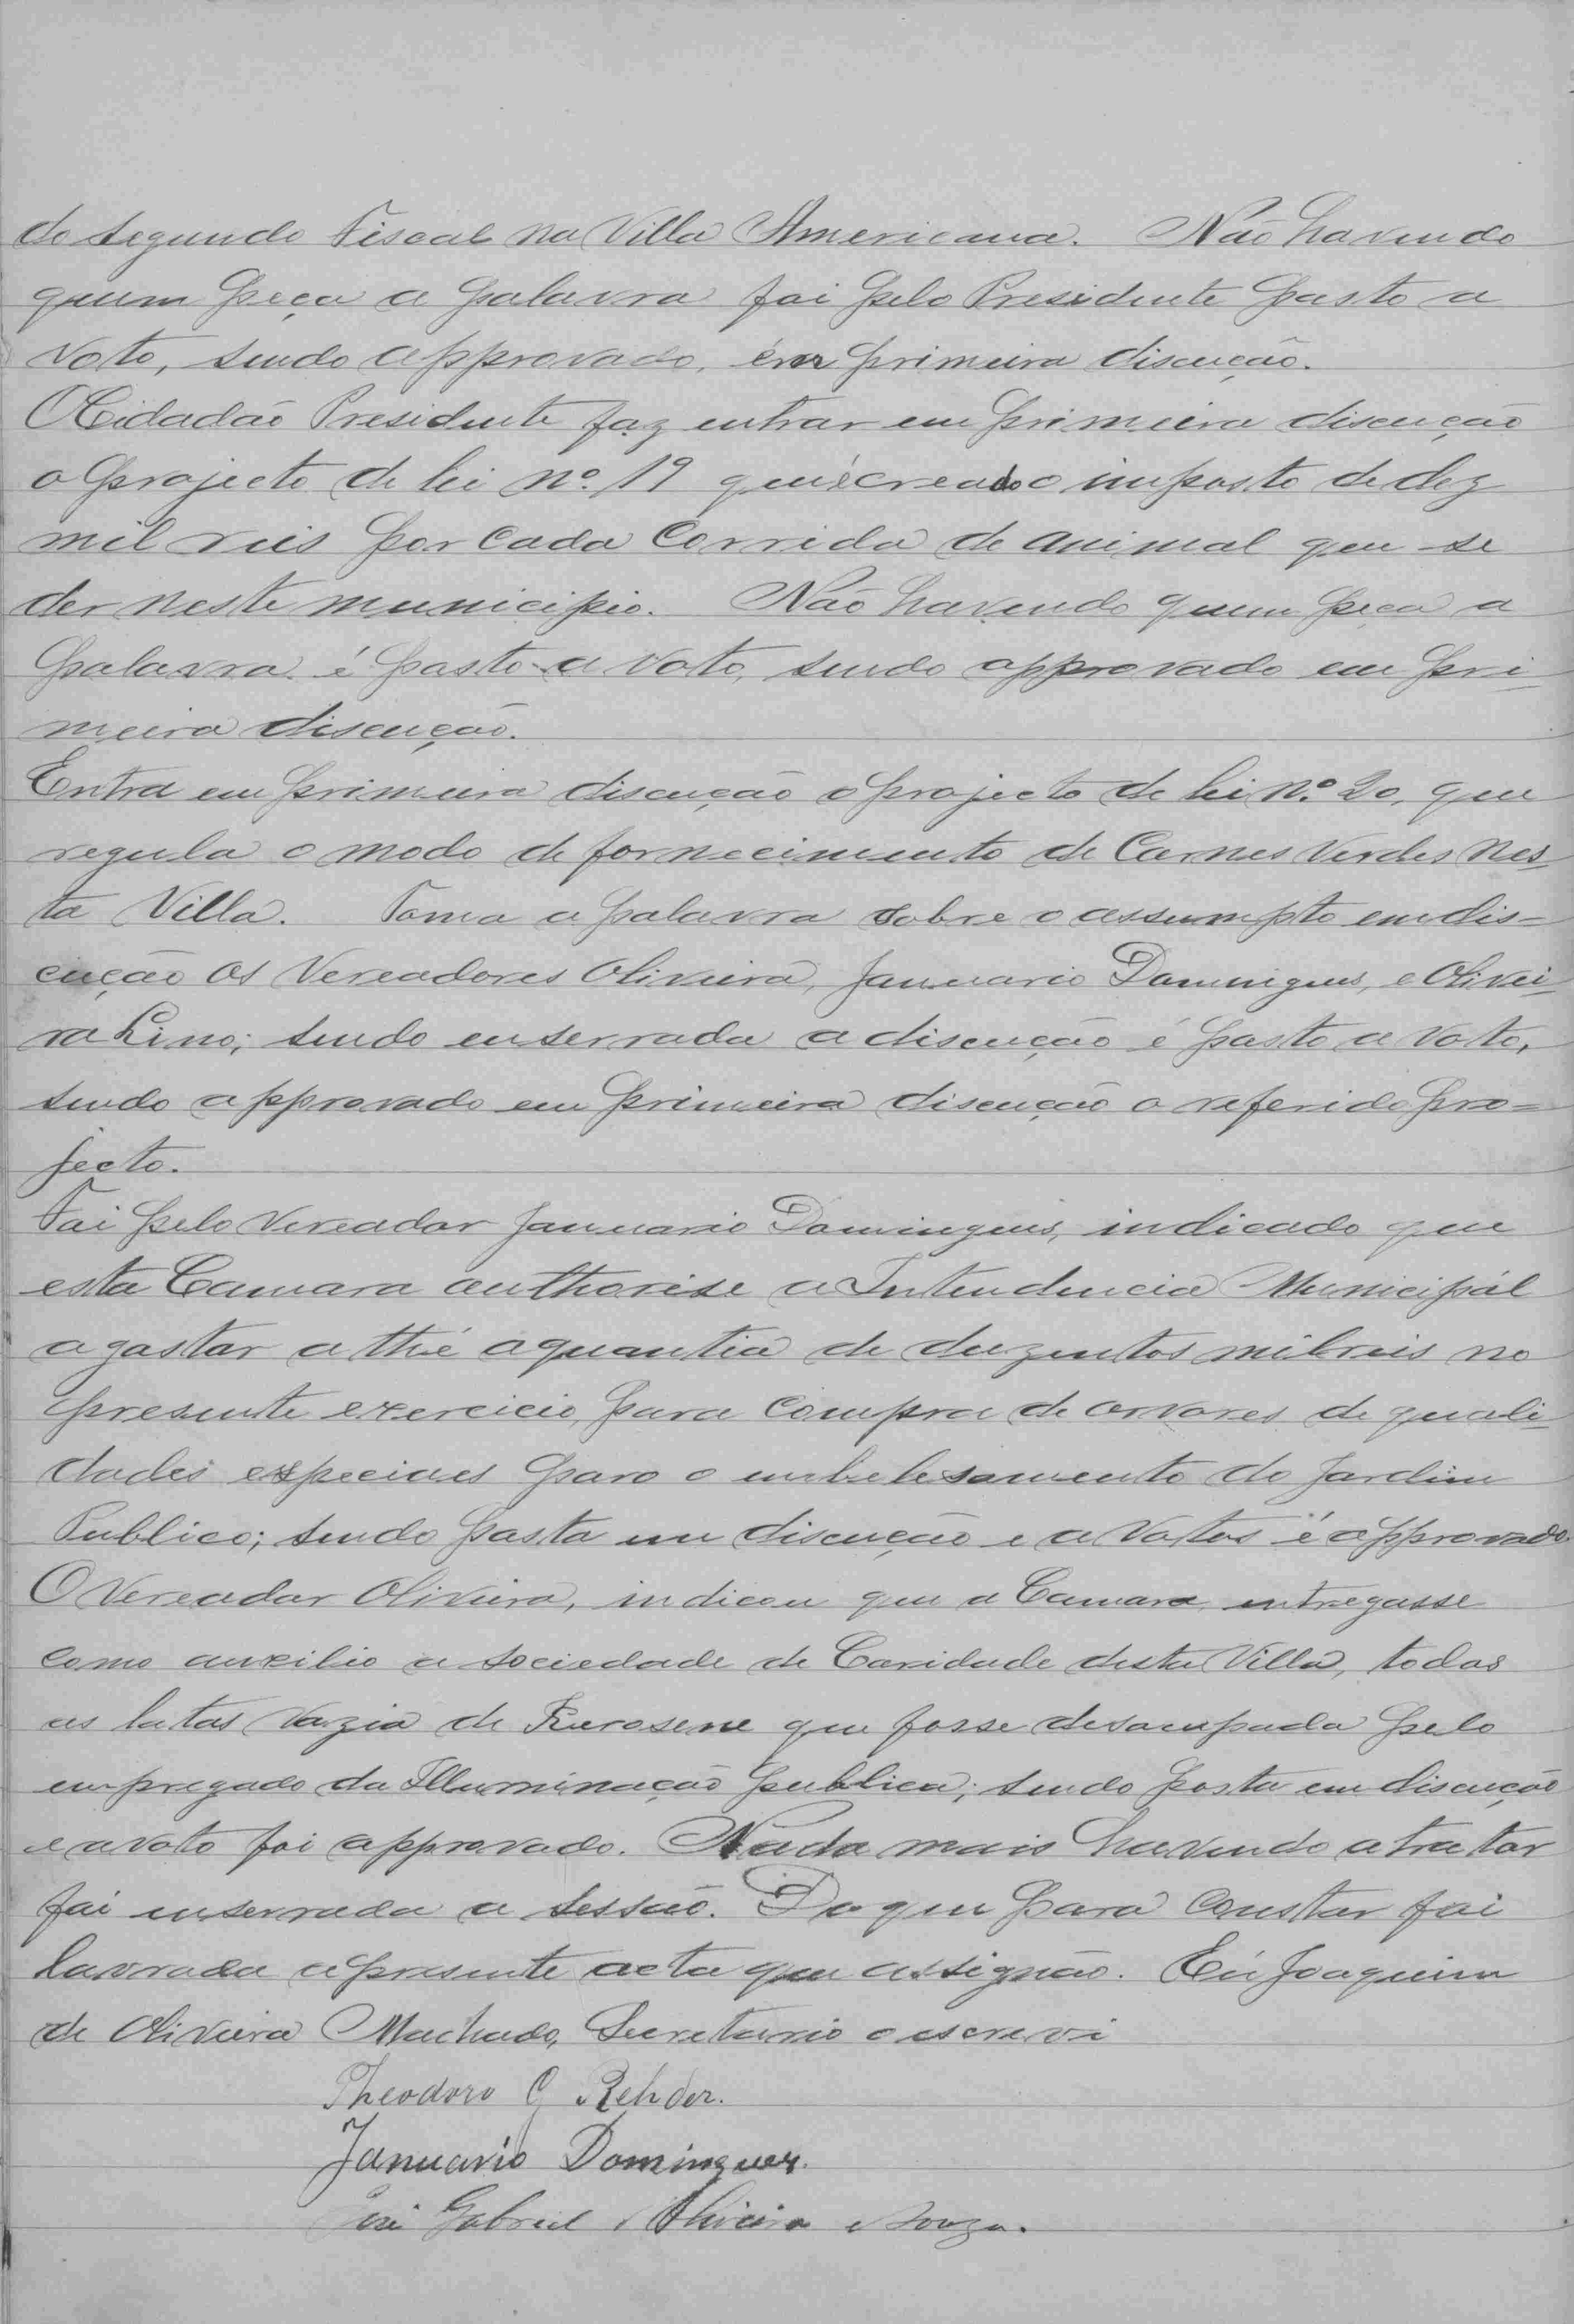 do segundo Fiscal na Villa Americana. Não havendo
quem peça a palavra foi pelo Presidente posto a
voto, sendo approvado, em primeira discução.
O Cidadão Presidente faz entrar em primeira discução
o projecto de lei nº 19 que é creado o imposto de dez
mil reis por cada corrida de animal que se
der neste municipio. Não havendo quem peça a
palavra é posto a voto, sendo approvado em pri-
meira discução.
Entra em primeira discução o projecto de lei n.º 20, que
regula o modo de fornecimento de Carnes Verdes nes-
ta Villa. Toma a palavra sobre o assumpto em dis-
cução os Vereadores Oliveira, Januario Domingues, e Olivei-
ra Lino; sendo enserrada a discução é posto a voto,
sendo approvado em primeira discução o referido pro-
jecto.
Foi pelo Vereador Januario Domingues, indicado que
esta Camara authorise a Intendencia Municipal
a gastar athé a quantia de duzentos mil reis no
presente exercicio, para compra de arvores de quali-
dades especiaes para o embelesamento do Jardim
Publico; sendo posta em discução e a votos é approvado.
O Vereador Oliveira, indicou que a Camara entregasse
como auxilio a sociedade de Caridade desta Villa, todas
as latas vazia de Kerosene que fosse desocupada pelo
empregado da Illuminação publica; sendo posta em discução
e a voto foi approvado. Nada mais havendo a tratar
foi enserrada a sessão. Do que para constar foi
lavrada a presente acta que assignão. Eu Joaquim
de Oliveira Machado, Secretario o escrevi
Theodoro G Rehder.
Januario Domingues.
José Gabriel Oliveira e Souza.